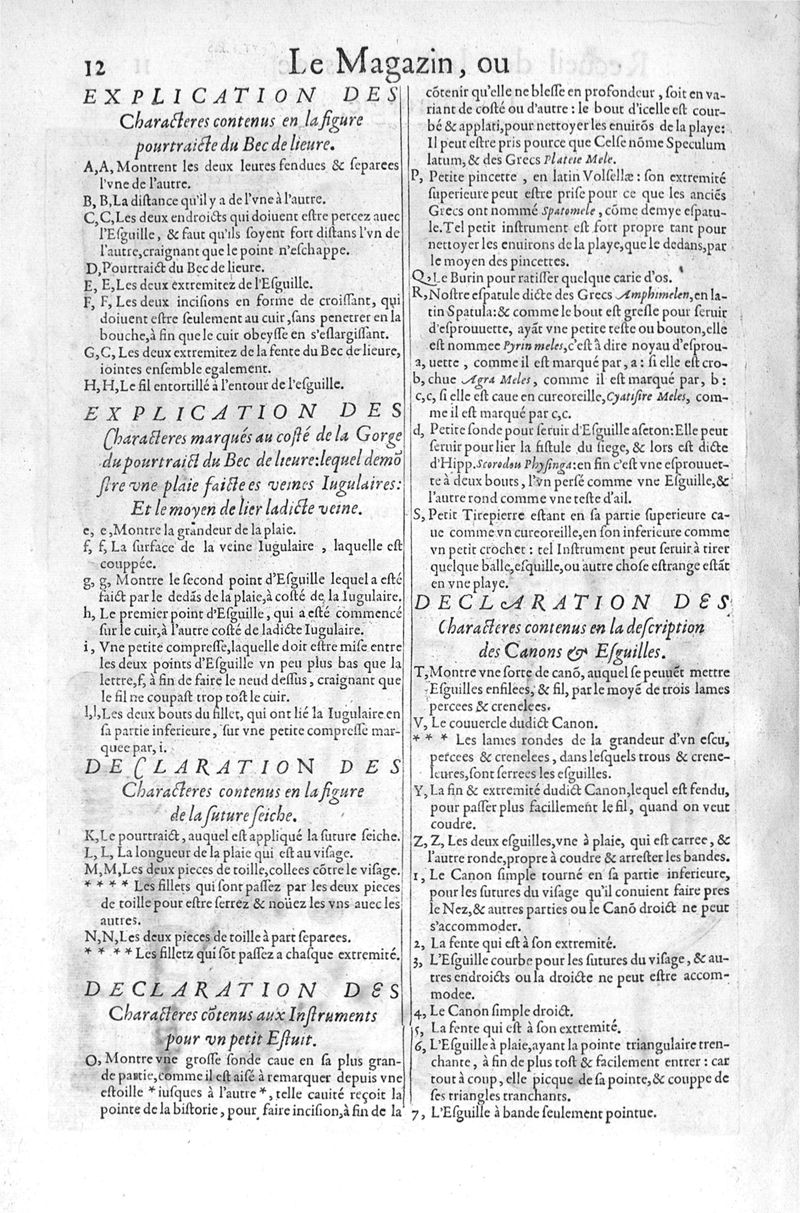 12
Le Magazin, ou
EXPLICATION DES
Characteres contenus en la figure
pourtraicte du Bec de lieure.
A,A, Montrent les deux leures fendues & separees
l'vne de l'autre.
B, B, La distance qu'il y a de l'vne à l'autre.
C, C, Les deux endroicts qui doiuent estre percez auec
l'Esguille, & faut qu'ils soyent fort distans l'vn de
l'autre, craignant que le point n'eschappe.
D, Pourtraict du Bec de lieure.
E, E, Les deux extremitez de l'Esguille.
F, F, Les deux incisions en forme de croissant, qui
doiuent estre seulement au cuir, sans penetrer en la
bouche, à fin que le cuir obeysse en s'eslargissant.
G, G, Les deux extremitez de la fente du Bec de lieure,
iointes ensemble egalement.
H, H, Le fil entortillé à l'entour de l'esguille.
EXPLICATION DES
Characteres marqués au costé de la Gorge
du pourtraict du Bec de lieure: lequel demõ
stre vne plaie faicte es veines Iugulaires:
Et le moyen de lier ladicte veine.
e, e, Montre la grandeur de la plaie.
f, f, La surface de la veine Iugulaire, laquelle est
couppée.
g, g, Montre le second point d'Esguille lequel a esté
faict par le dedãs de la plaie, à costé de la Iugulaire.
h, Le premier point d'Esguille, qui a esté commencé
sur le cuir, à l'autre costé de ladicte Iugulaire.
i, Vne petite compresse, laquelle doit estre mise entre
les deux points d'Esguille vn peu plus bas que la
lettre, f, à fin de faire le neud dessus, craignant que
le fil ne coupast trop tost le cuir.
l, l, Les deux bouts du fillet, qui ont lié la Iugulaire en
sa partie inferieure, sur vne petite compresse mar-
quee par, i.
DECLARATION DES
Characteres contenus en la figure
de la suture seiche.
K, Le pourtraict, auquel est appliqué la suture seiche.
L, L, La longueur de la plaie qui est au visage.
M, M, Les deux pieces de toille, collees cõtre le visage.
* * * * Les fillets qui sont passez par les deux pieces
de toille pour estre serrez & noüez les vns auec les
autres.
N, N, Les deux pieces de toille à part separees.
* * * * Les filletz qui sõt passez a chasque extremité.
DECLARATION DES
Characteres cõtenus aux Instruments
pour vn petit Estuit.
O, Montre vne grosse sonde caue en sa plus gran-
de partie, comme il est aisé à remarquer depuis vne
estoille * iusques à l'autre *, telle cauité reçoit la
pointe de la bistorie, pour faire incision, à fin de la
cõtenir qu'elle ne blesse en profondeur, soit en va-
riant de costé ou d'autre: le bout d'icelle est cour-
bé & applati, pour nettoyer les enuirõs de la playe:
Il peut estre pris pource que Celse nõme Speculum
latum, & des Grecs Plateie Mele.
P, Petite pincette, en latin Volsellæ: son extremité
superieure peut estre prise pour ce que les anciẽs
Grecs ont nommé Spatomele, cõme demye espatu-
le. Tel petit instrument est fort propre tant pour
nettoyer les enuirons de la playe, que le dedans, par
le moyen des pincettes.
Q, Le Burin pour ratisser quelque carie d'os.
R, Nostre espatule dicte des Grecs Amphimelen, en la-
tin Spatula: & comme le bout est gresle pour seruir
d'esprouuette, ayãt vne petite teste ou bouton, elle
est nommee Pyrin meles, c'est à dire noyau d'esprou-
a, uette, comme il est marqué par, a: si elle est cro-
b, chue Agra Meles, comme il est marqué par, b:
c, c, si elle est caue en cureoreille, Cyatisire Meles, com-
me il est marqué par c, c.
d, Petite sonde pour seruir d'Esguille aseton: Elle peut
seruir pour lier la fistule du siege, & lors est dicte
d'Hipp. Scorodou Physinga: en fin c'est vne esprouuet-
te à deux bouts, l'vn persé comme vne Esguille, &
l'autre rond comme vne teste d'ail.
S, Petit Tirepierre estant en sa partie superieure ca-
ue comme vn cureoreille, en son inferieure comme
vn petit crochet: tel Instrument peut seruir à tirer
quelque balle, esquille, ou autre chose estrange estãt
en vne playe.
DECLARATION DES
Characteres contenus en la description
des Canons & Esguilles.
T, Montre vne sorte de canõ, auquel se peuuẽt mettre
Esguilles enfilees, & fil, par le moyẽ de trois lames
percees & crenelees.
V, Le couuercle dudict Canon.
* * * Les lames rondes de la grandeur d'vn escu,
percees & crenelees, dans lesquels trous & crene-
leures, sont serrees les esguilles.
Y, La fin & extremité dudict Canon, lequel est fendu,
pour passer plus facillement le fil, quand on veut
coudre.
Z, Z, Les deux esguilles, vne à plaie, qui est carree, &
l'autre ronde, propre à coudre & arrester les bandes.
1, Le Canon simple tourné en sa partie inferieure,
pour les sutures du visage qu'il conuient faire pres
le Nez, & autres parties ou le Canõ droict ne peut
s'accommoder.
2, La fente qui est à son extremité.
3, L'Esguille courbe pour les sutures du visage, & au-
tres endroicts ou la droicte ne peut estre accom-
modee.
4, Le Canon simple droict.
5, La fente qui est à son extremité.
6, L'Esguille à plaie, ayant la pointe triangulaire tren-
chante, à fin de plus tost & facilement entrer: car
tout à coup, elle picque de sa pointe, & couppe de
ses triangles tranchants.
7, L'Esguille à bande seulement pointue.